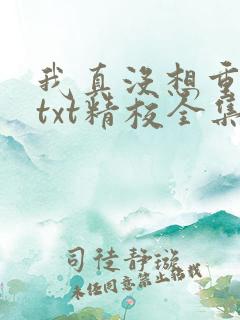 我真没想重
txt精校全集
司徒静璇
未经同意禁止转载